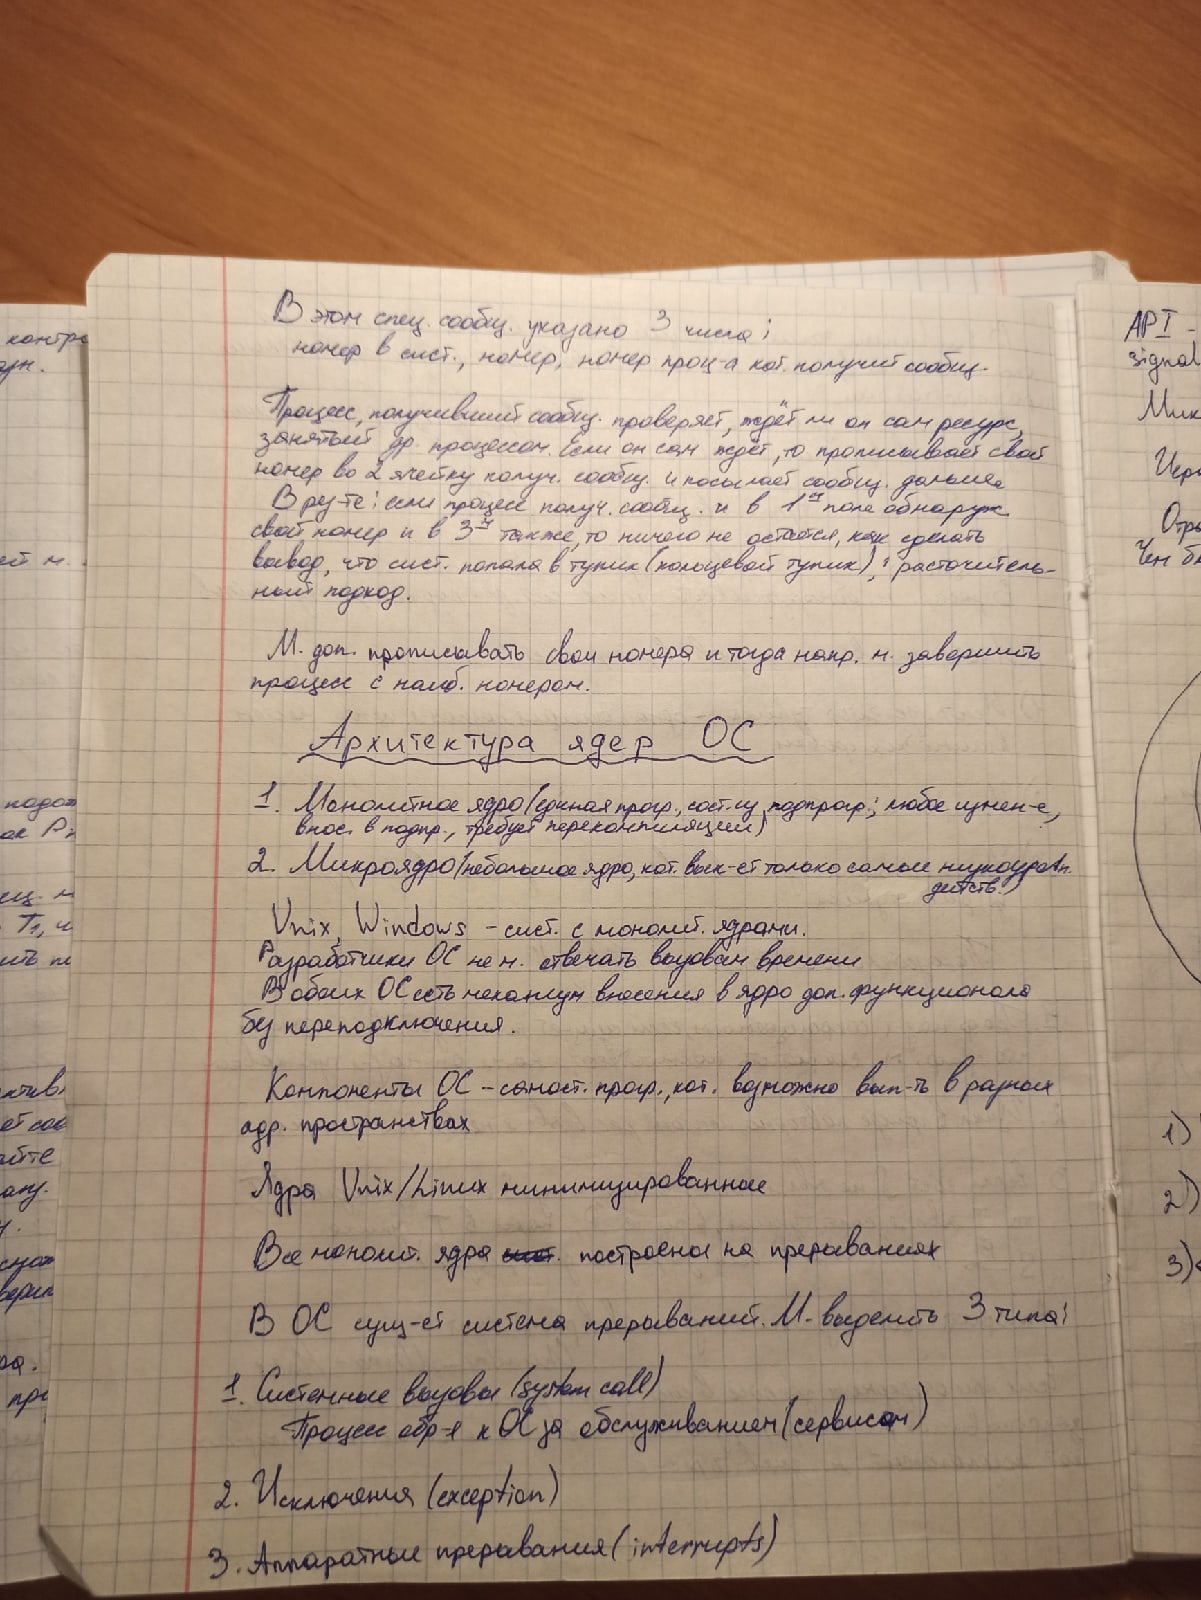 В этом спец. сообщ. указано 3 числа:
номер в сист., номер, номер проц-а кот. получит сообщ.
Процесс, получивший сообщ. проверяет, ждёт ли он сам ресурс,
занятый др. процессом. Если он сам ждёт, то прописывает свой
номер во 2 ячейку получ. сообщ. и посылает сообщ. дальше.
В рез-те: если процесс получ. сообщ. и в 1й поле обнаруж.
свой номер и в 3й также, то ничего не остаётся, как сделать
вывод, что сист. попала в тупик (кольцевой тупик); расточитель-
ный подход.
М. доп. прописывать свои номера и тогда напр. м. завершить
процесс с наиб. номером.
Архитектура ядер ОС
1. Монолитное ядро (единая прогр., сост. из подпрогр.; любое измен-е,
внос. в подпр., требует перекомпиляции)
2. Микроядро (небольшое ядро, кот. вып-ет только самые низкоуровн.
действ.)
Unix, Windows - сист. с монолит. ядрами.
Разработчики ОС не м. отвечать вызовам времени
В обоих ОС есть механизм внесения в ядро доп. функционала
без переподключения.
Компоненты ОС - самост. прогр., кот. возможно вып-ть в разных
адр. пространствах
Ядра Unix/Linux минимизированные
Все монолит. ядра построены на прерываниях
В ОС сущ-ет система прерываний. М. выделить 3 типа:
1. Системные вызовы (system call)
Процесс обр-я к ОС за обслуживанием (сервисом)
2. Исключения (exception)
3. Аппаратные прерывания (interrupts)
API -
signal
1)
2)
3)